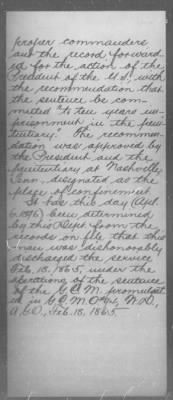 proper commanders
and the record forward-
ed for the action of the
President of the U.S. with
the recommendation that
the sentence be com-
muted "to ten years im-
prisonment in the peni-
tentiary." The recommen-
dation was approved by
the President and the
penitentiary at Nashville,
Tenn. designated as the
place of confinement.
It has this day (Apl.
6. 1896) been determined
by this Dept. from the
records on file that this
man was dishonorably
discharged the service
Feb. 18. 1865, under the
operations of the sentence
of the G.C.M. promulgat-
ed in G.C.M.O. W.D.,
A.G.O., Feb. 18. 1865.